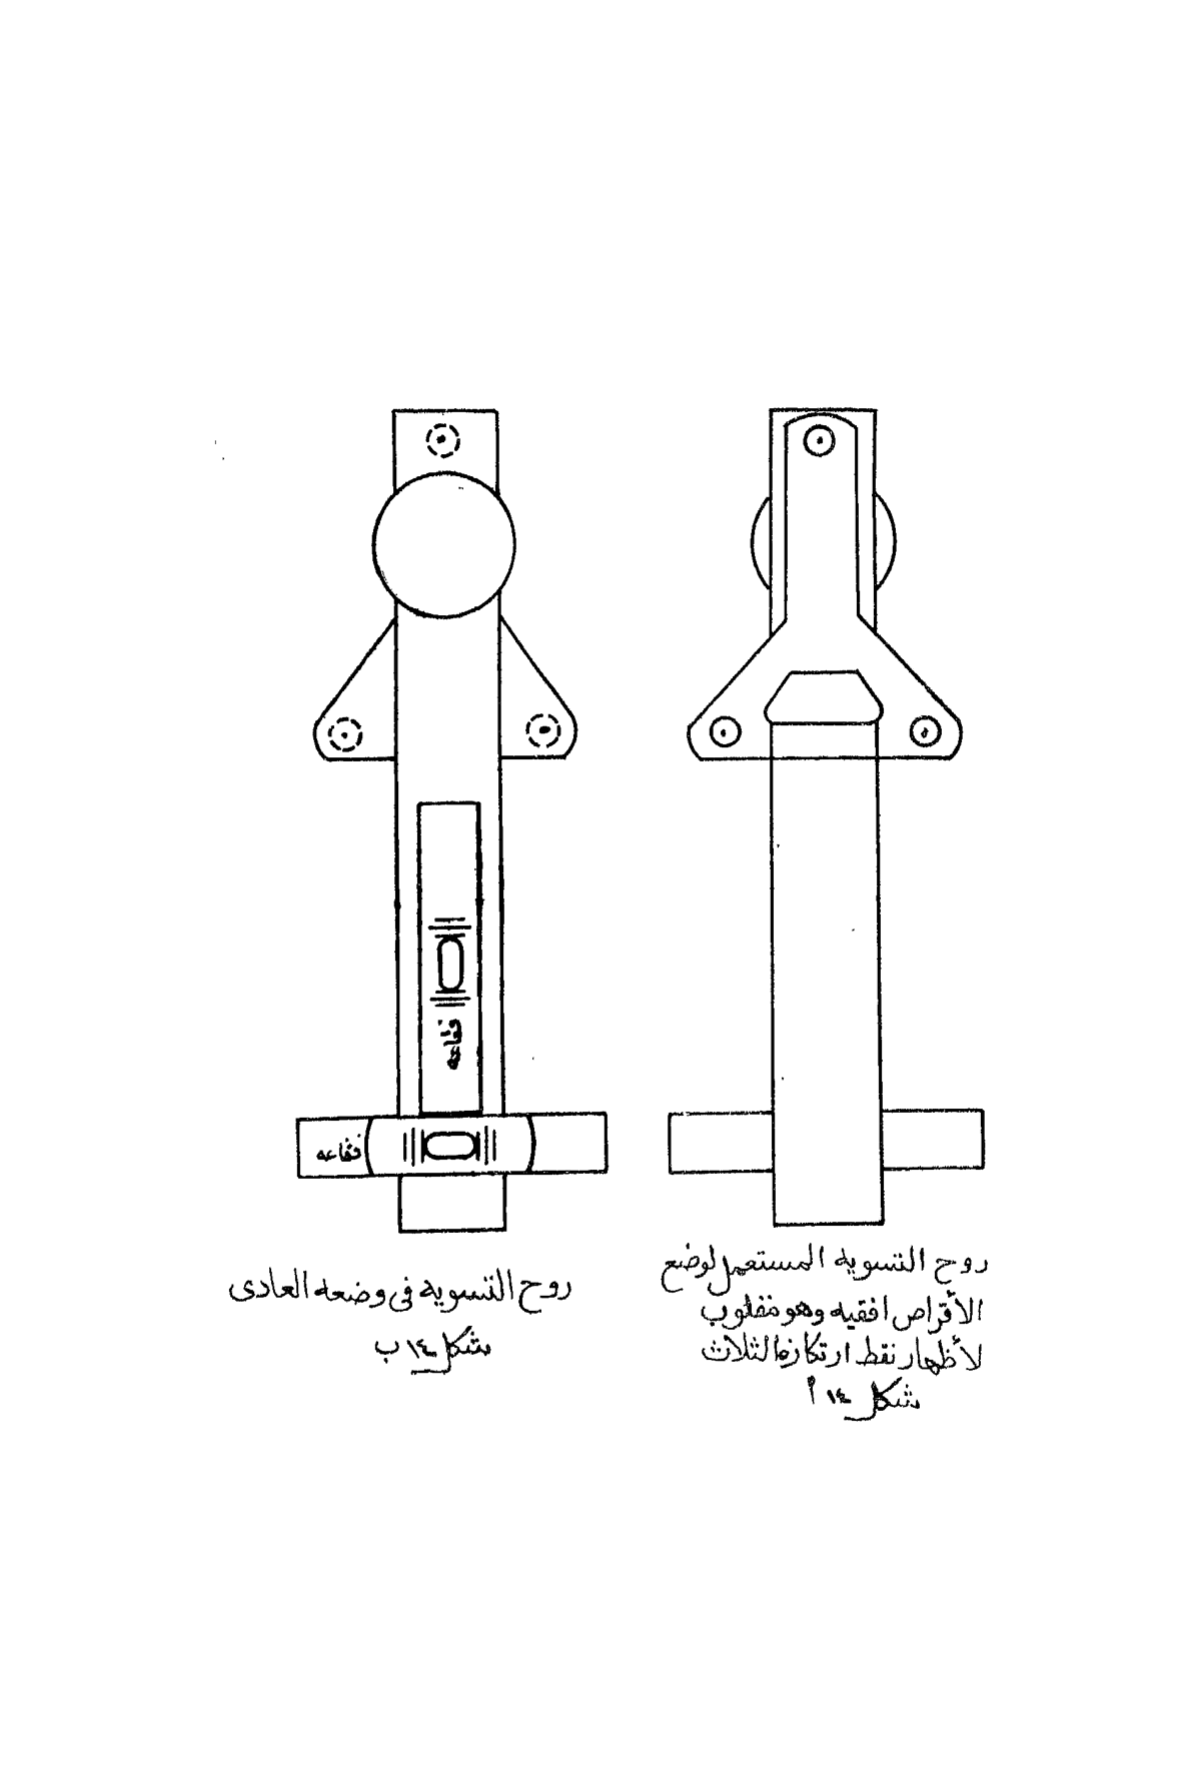 فقاعه
فقاعه
روح التسويه المستعمل لوضع
الأقراص افقيه وهو مقلوب
لأظهار نقط ارتكازها الثلاث
شكل ١٤ أ
روح التسويه فى وضعه العادى
شكل ١٤ ب